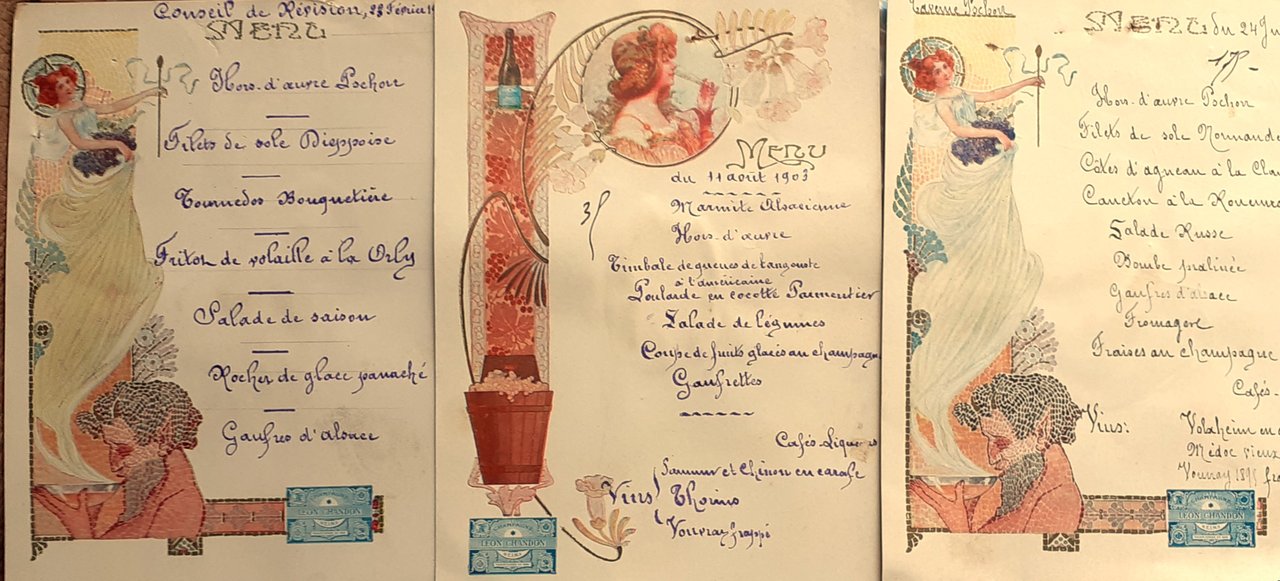 Conseil de Révision, 28 Février 19
MENU
Hors. d'œuvre Pschorr
Filets de sole Dieppoise
Tournedos Bouquetière
Friton de volaille à la Orly
Salade de saison
Rocher de glace panaché
Gaufres d'Alsace
LEON CHANDON
REIMS
MENU
du 11 août 1903
Marmite Alsacienne
Hors. d'œuvre
Timbale de queues de langouste
à l'américaine
Poularde en cocotte Parmentier
Salade de légumes
Coupe de fruits glacés au champagn
Gaufrettes
Cafés. Liqueurs
Vins
Saumur et Chinon en carafe
Thorins
Vouvray frappé
CHAMPAGNE
LEON CHANDON
REIMS
Taverne Pschorr
MENU du 24 Ju
Hors. d'œuvre Pschorr
Filets de sole Normande
Côtes d'agneau à la Cha
Caneton à la Rouenn
Salade Russe
Bombe pralinée
Gaufres d'alsace
Fromages
Fraises au champagne
Cafés.
Vins: Volxheim en c
Médoc vieux
Vouvray fr
CHAMPAGNE
LEON CHANDON
REIMS